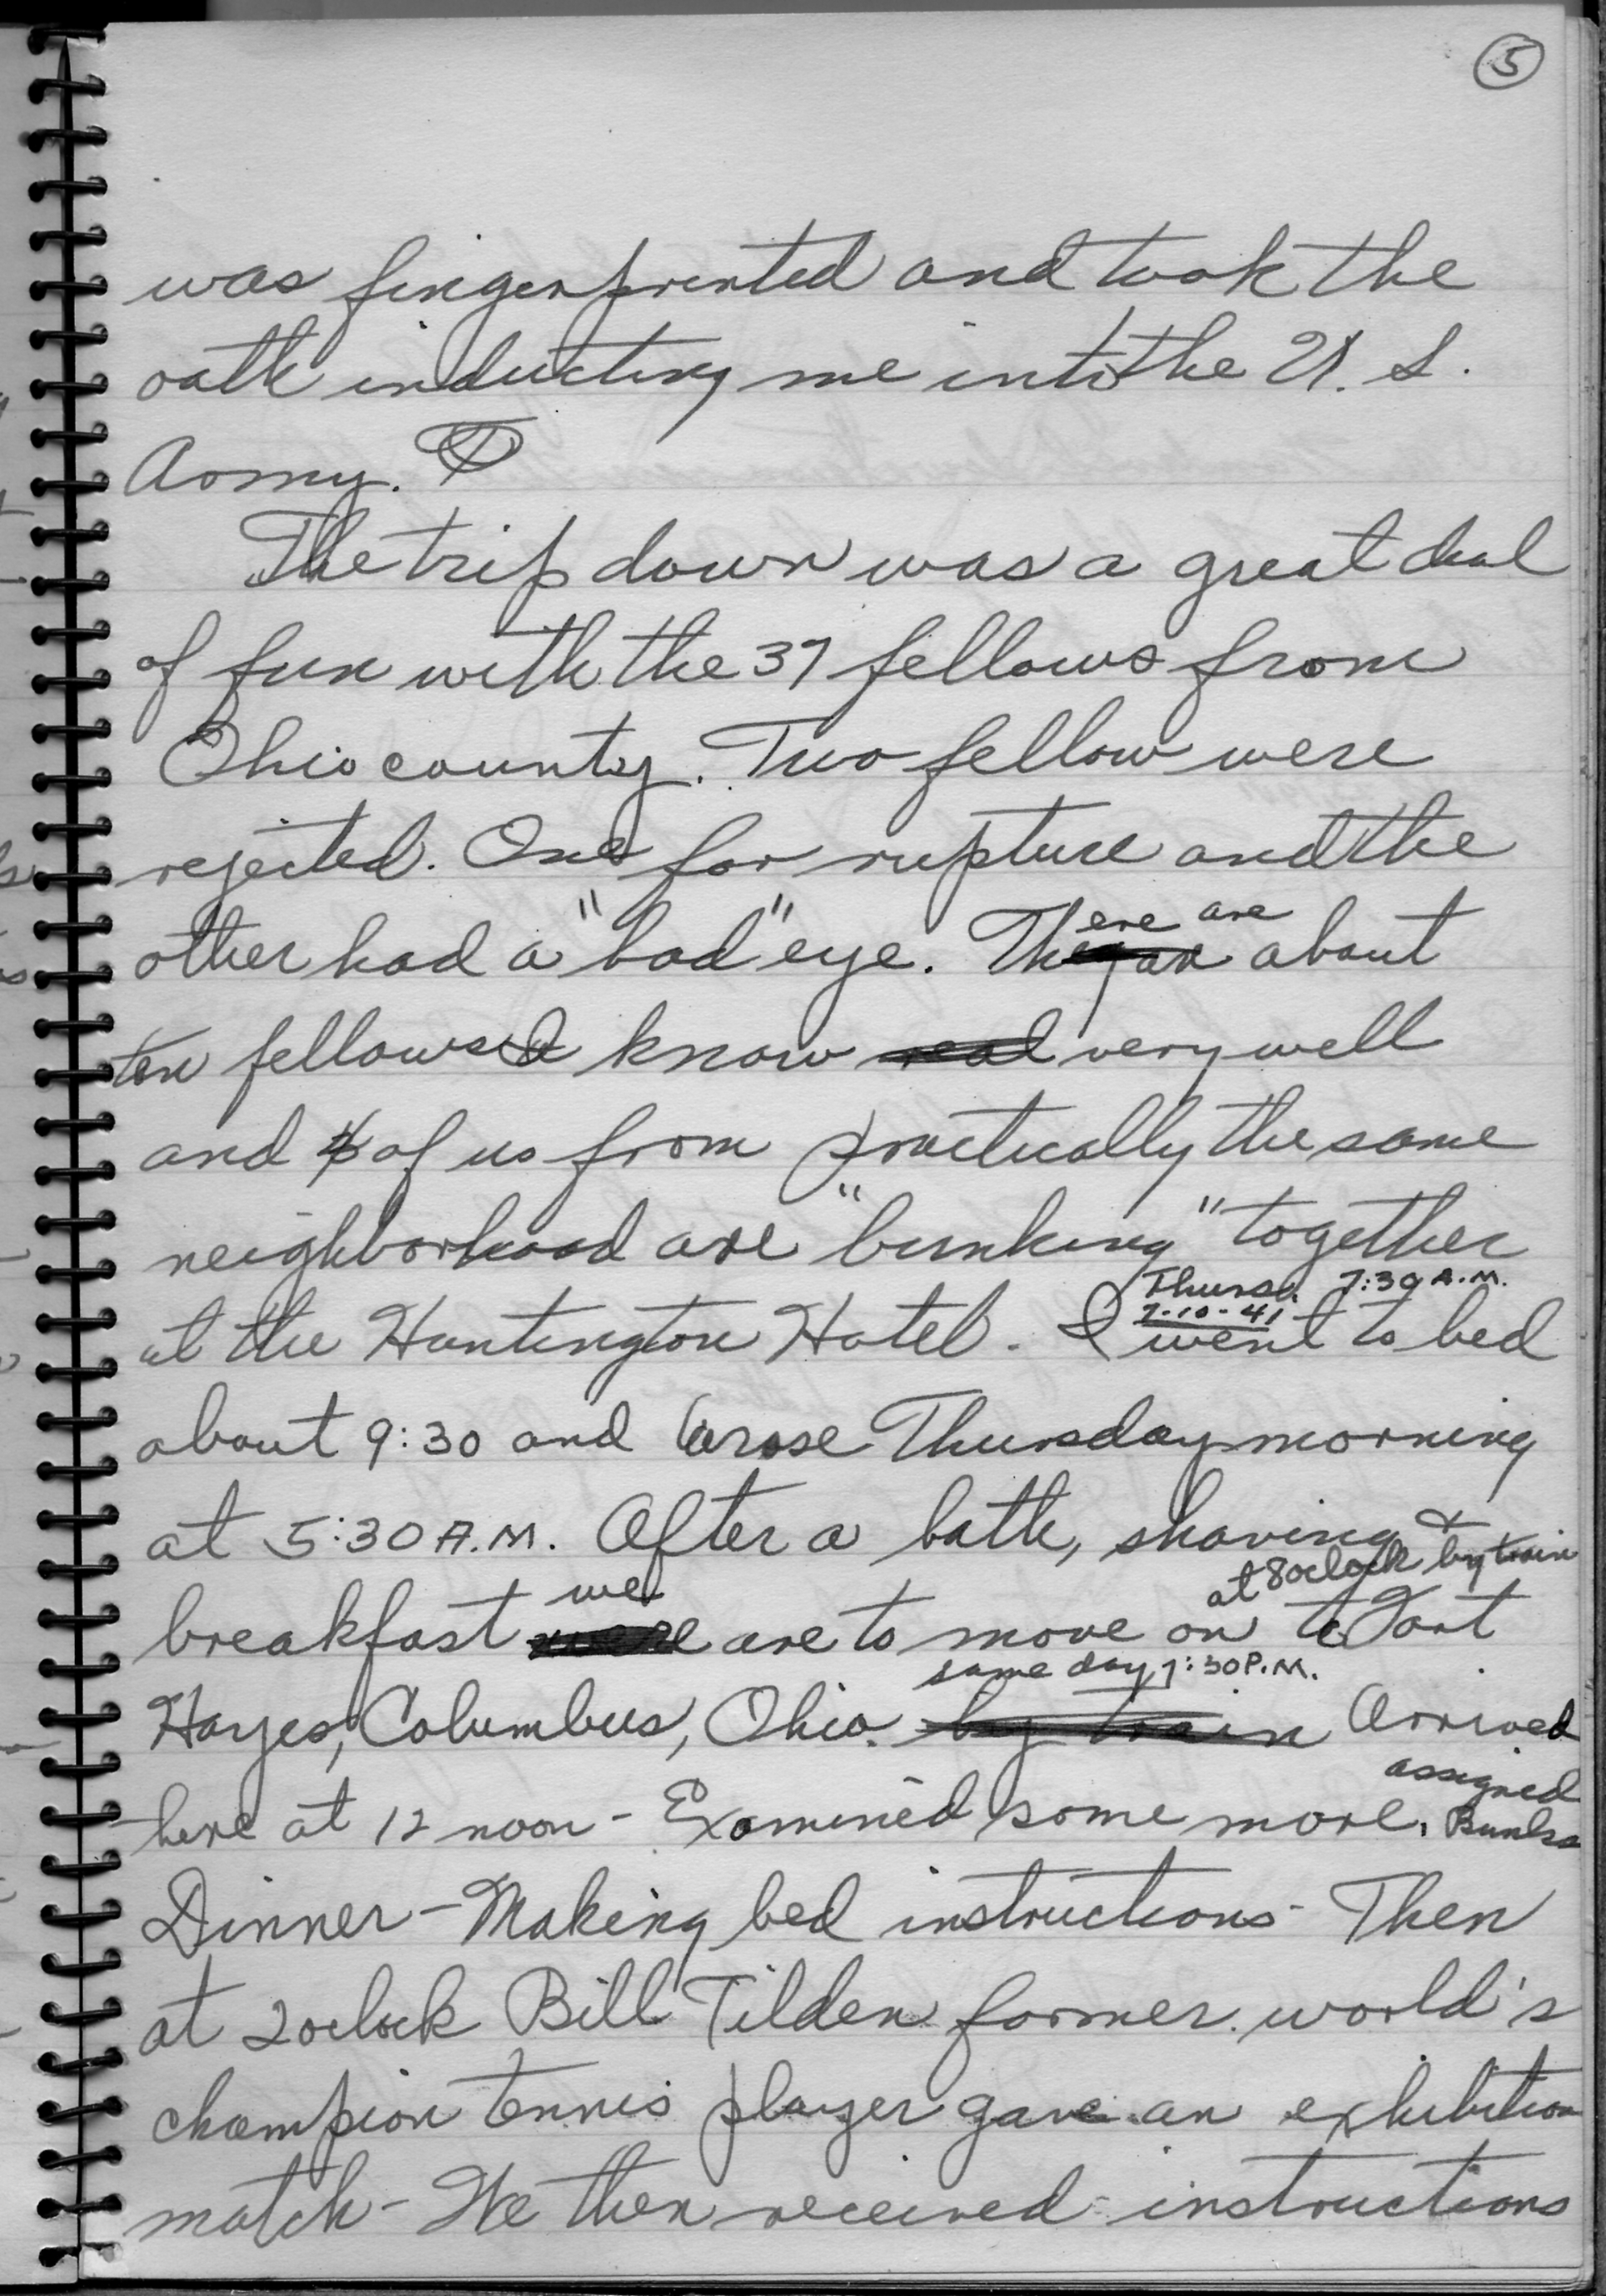 5
was fingerprinted and took the
oath inducting me into the U. S.
Army.
The trip down was a great deal
of fun with the 37 fellows from
Ohio county. Two fellow were
rejected. One for rupture and the
ere are
other had a "bad" eye. They are about
ten fellows I know real very well
and 4 of us from practically the same
neighborhood are "bunking" together
Thurs. 7:30 A.M.
7-10-41
at the Huntington Hotel. I went to bed
about 9:30 and arose Thursday morning
at 5:30 A.M. After a bath, shaving &
at 8oclock by train
we
breakfast were are to move on to Fort
same day 7:30 P.M.
Hayes, Columbus, Ohio. by train Arrived
assigned
here at 12 noon - Examined some more. Bunks
Dinner - Making bed instructions - Then
at 2oclock Bill Tilden former world's
champion tennis player gave an exhibition
match - We then received instructions